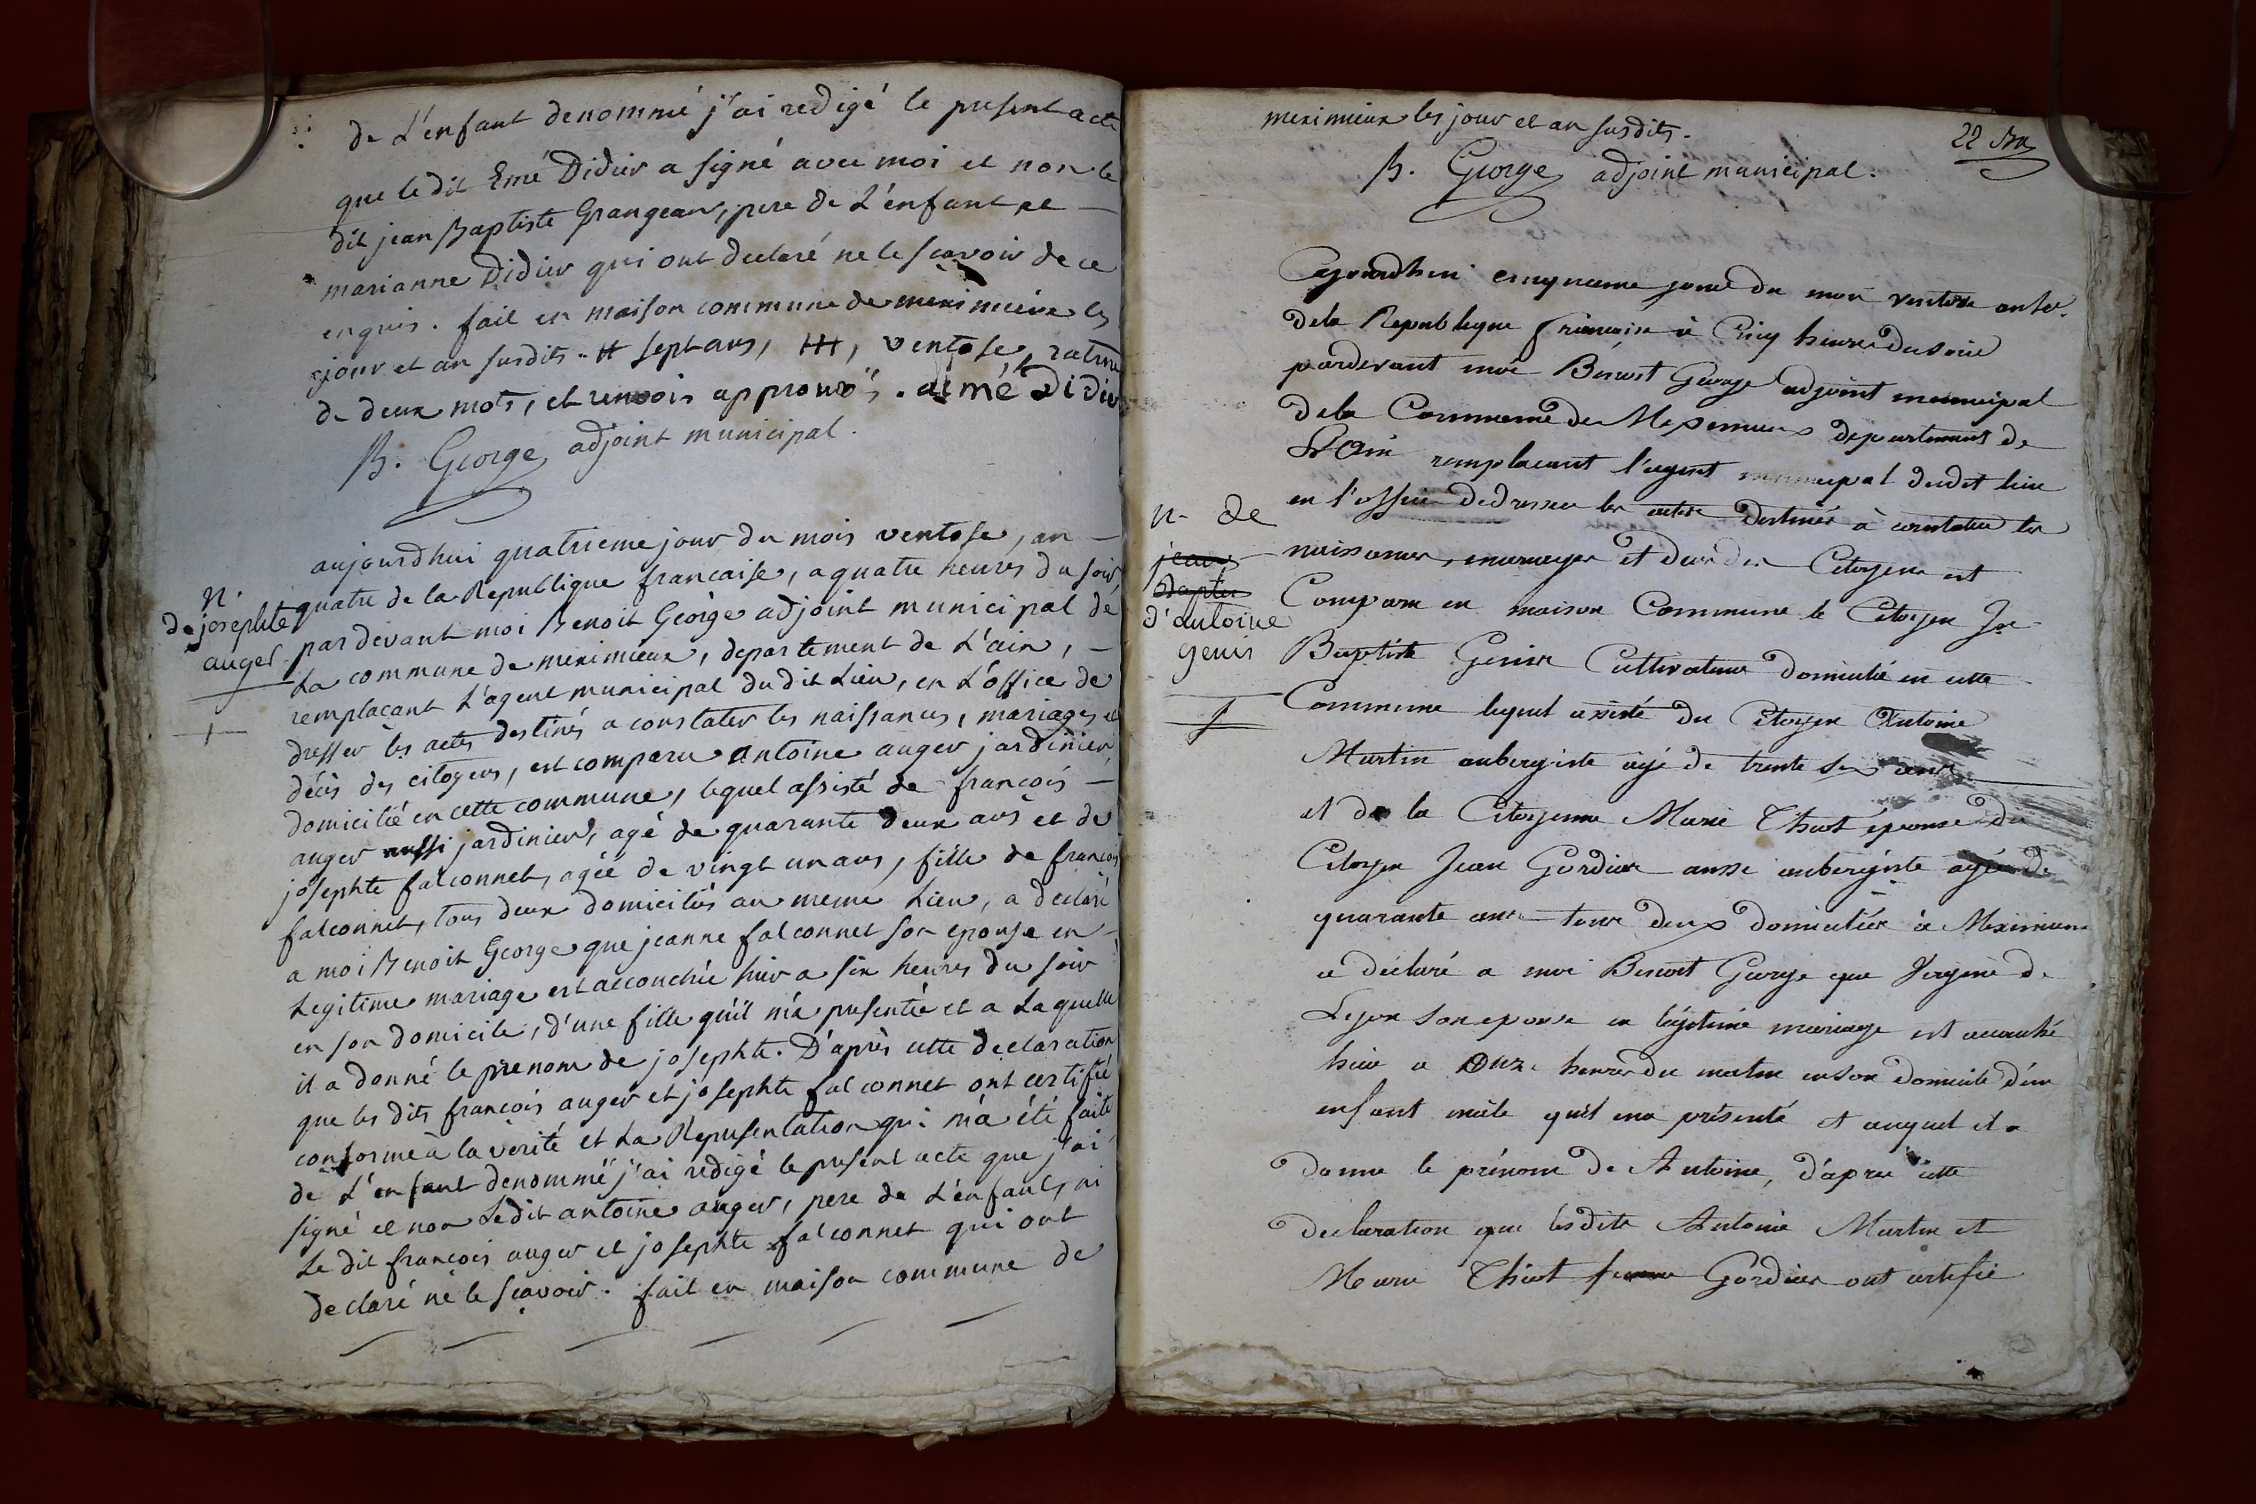 de L'enfant denommé j'ai redigé le present acte
que le dit Emé Didier a signé avec moi et non le
dit jean Baptiste Grangean, pere de L'enfant et
marianne Didier qui ont declaré ne le scavoir de ce
enquis. fait en maison commune de meximieux les
jour et an susdits. # sept ans, ###, ventose, rature
de deux mots, et renvois approuvés. aimé Didier
B. George adjoint municipal.
aujourdhui quatrieme jour du mois ventose, an
quatre de la Republique francaise, a quatre heures du soir,
par devant moi Benoit George adjoint municipal de
La commune de meximieux, departement de L'ain,
remplaçant L'agent municipal du dit Lieu, en L'office de
dresser les actes destinés a constater les naissances, mariages et
décès des citoyens, est comparu antoine auger jardinier
domicilié en cette commune, lequel assisté de françois
auger aussi jardinier, agé de quarante deux ans et de
josephte falconnet, agée de vingt un ans, fille de francois
falconnet, tous deux domiciliés au meme Lieu, a declaré
a moi Benoit George que jeanne falconnet son epouse en
Legitime mariage est accouchée hier a six heures du soir
en son domicile, d'une fille qu'il m'a presentée et a Laquelle
il a donné le prenom de josephte. D'après cette declaration
que les dits francois auger et josephte falconnet ont certifié
conforme à la verité et La Representation qui m'a été faite
de L'enfant denommé j'ai redigé le present acte que j'ai
signé et non Ledit antoine auger, pere de L'enfant, ni
Le dit francois auger et josephte falconnet qui ont
declaré ne le scavoir. fait en maison commune de
n.
de josephte
auger
meximieux les jour et an susdits.
22
B. George adjoint municipal.
Cejourdhui cinquieme jour du mois ventose
de la Republique francaise à Cinq heures du soir
pardevant moi Benoist George adjoint municipal
de la Commune de Meximieux departement de
L'Ain remplacant l'agent municipal dudit lieu
en l'office de dresser les actes destinés à constater les
naissances, mariages et des Citoyens est
Comparu en maison Commune le Citoyen Jn
Baptiste Genis Cultivateur domicilié en cette
Commune lequel assisté du Citoyen Antoine
Martin aubergiste agé de trente six ans
et de la Citoyenne Marie Thiot épouse du
Citoyen Jean Gordier aussi aubergiste agée de
quarante ans tous deux domiciliés à Meximieux
a déclaré a moi Benoist George que de
Leyon son epouse en légitime mariage est accouché
hier a onze heures du matin en son domicile d'un
enfant mâle qu'il ma présenté et auquel il a
donné le prénom de Antoine, d'apres cette
declaration que lesdits Antoine Martin et
Marie Thiot femme Gordier ont certifié
n. de
jean
baptiste
d'antoine
genis